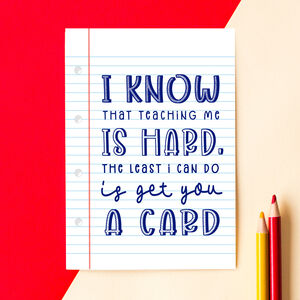 I KNOW
THAT TEACHING ME
IS HARD.
THE LEAST I CAN DO
is get you
A CARD